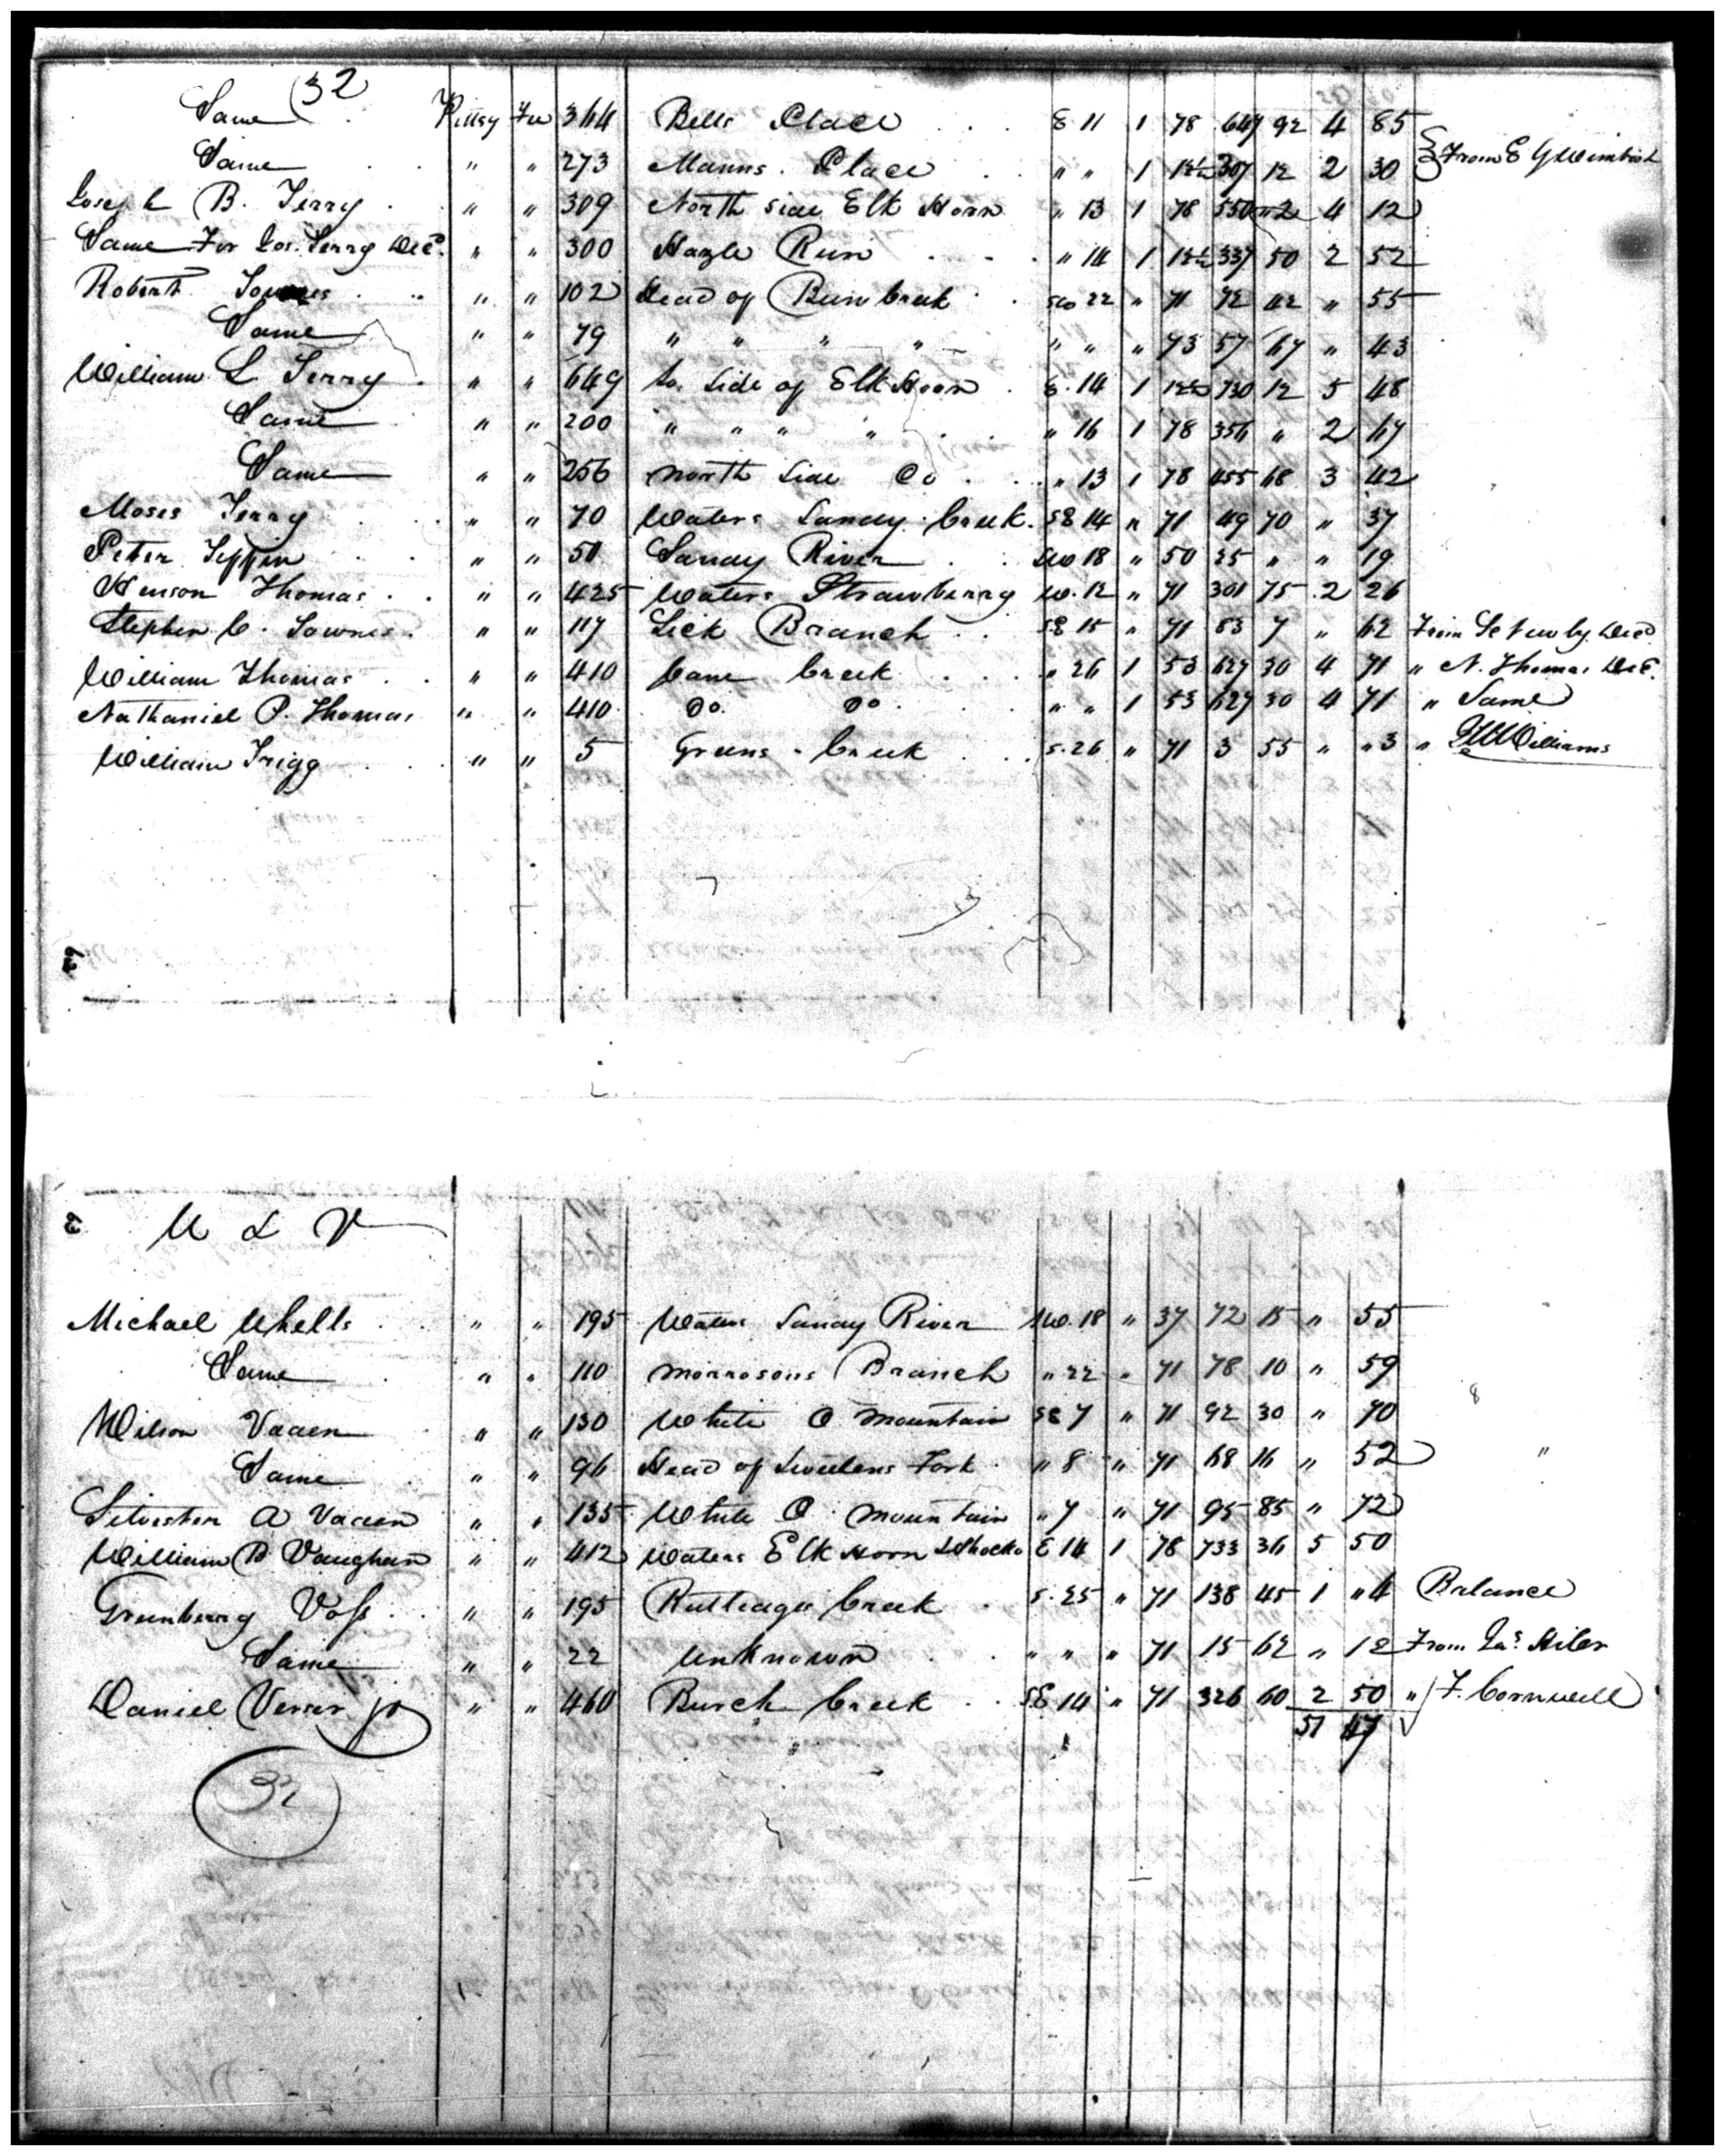 32
Same Pittsy Fee 364 Bells Place E 11 1 78 647 92 4 85
Same " " 273 Manns Place " " 1 12½ 307 12 2 30 From E G Wimbish
Joseph B. Terry " " 309 North side Elk Horn " 13 1 78 550 " 2 4 12
Same For Jos. Terry Decd. " " 300 Hazle Run " 14 1 12½ 337 50 2 52
Robert Townes " " 102 Head of Burn Creek SW 22 " 71 72 42 " 55
Same " " 79 " " " " " " " 73 57 67 " 43
William L Terry " " 649 So. Side of Elk Horn E. 14 1 12½ 730 12 5 48
Same " " 200 " " " " " 16 1 78 356 " 2 67
Same " " 256 North Side Do " 13 1 78 455 68 3 42
Moses Terry " " 70 Waters Sandy Creek SE 14 " 71 49 70 " 37
Peter Tippin " " 50 Sandy River SW 18 " 50 25 " " 19
Henson Thomas " " 425 Waters Strawberry W. 12 " 71 301 75 2 26
Stephen C. Townes " " 117 Lick Branch SE 15 " 71 83 7 " 62 From Decd
William Thomas " " 410 Cane Creek " 26 1 53 627 30 4 71 " N. Thomas Decd.
Nathaniel P. Thomas " " 410 Do. Do " " 1 53 627 30 4 71 " Same
William Trigg " " 5 Greens Creek S. 26 " 71 3 55 " " 3 " Williams
62
63
U & V
Michael Uhells " " 195 Waters Sandy River SW. 18 " 37 72 15 " 55
Same " " 110 Morrosons Branch " 22 " 71 78 10 " 59
Wilson Vaden " " 130 White O Mountain SE 7 " 71 92 30 " 70
Same " " 96 Head of Sweetens Fork " 8 " 71 68 16 " 52
Silvester A Vaden " " 135 White O Mountain " 7 " 71 95 85 " 72
William B Vaughan " " 412 Waters Elk Horn & Shocko E 14 1 78 733 36 5 50
Greenberry Voss " " 195 Rutledge Creek S. 25 " 71 138 45 1 " 4 Balance
Same " " 22 Unknown " " " 71 15 62 " 12 From Jas. Hiler
Daniel Verser jr " " 460 Burch Creek SE 14 " 71 326 60 2 50 " F. Cornwell
51 47
32